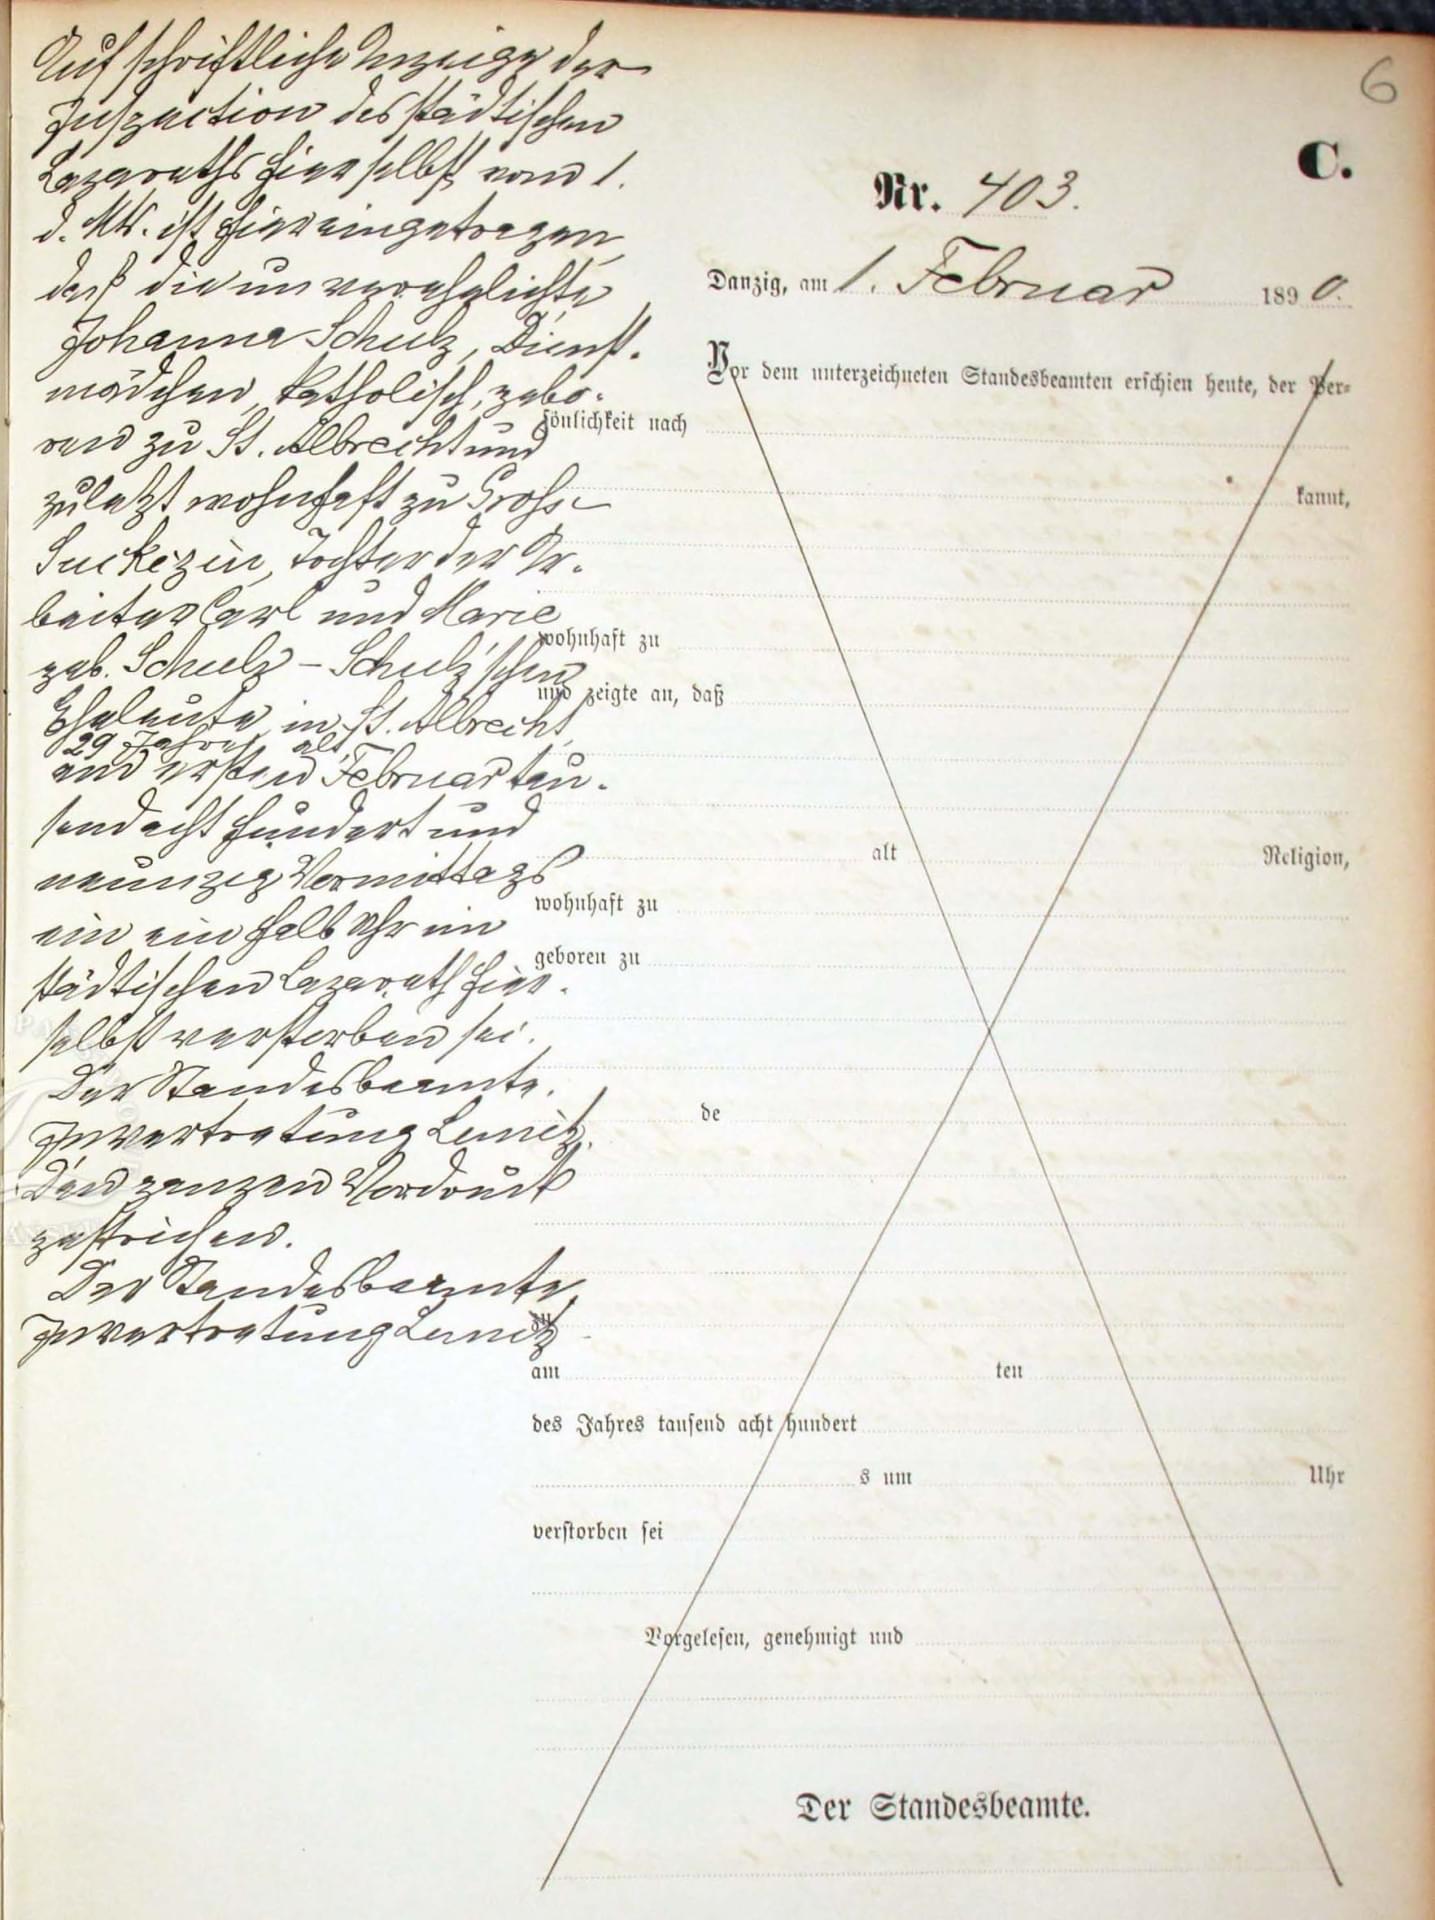 6
C.
Nr. 403.
Danzig, am 1. Februar 1890.
Auf schriftliche Anzeige der
Inspection des städtischen
Lazareths hierselbst vom 1.
d. Mts. ist hier eingetragen,
daß die unverehelichte
Johanna Schulz, Dienst-
mädchen, katholisch, gebo-
ren zu St. Albrecht und
zuletzt wohnhaft zu Gross-
Suckczin, Tochter der Ar-
beiter Carl und Marie
geb. Schulz - Schulz'schen
Eheleute in St. Albrecht,
29 Jahre alt,
am ersten Februar tau-
send acht hundert und
neunzig Vormittags
ein ein halb Uhr im
städtischen Lazareth hier-
selbst verstorben sei.
Der Standesbeamte.
In Vertretung
Den ganzen Vordruck
gestrichen.
Der Standesbeamte
In Vertretung
Vor dem unterzeichneten Standesbeamten erschien heute, der Per-
sönlichkeit nach
kannt,
wohnhaft zu
und zeigte an, daß
alt Religion,
wohnhaft zu
geboren zu
de
zu
am ten
des Jahres tausend acht hundert
s um Uhr
verstorben sei
Vorgelesen, genehmigt und
Der Standesbeamte.